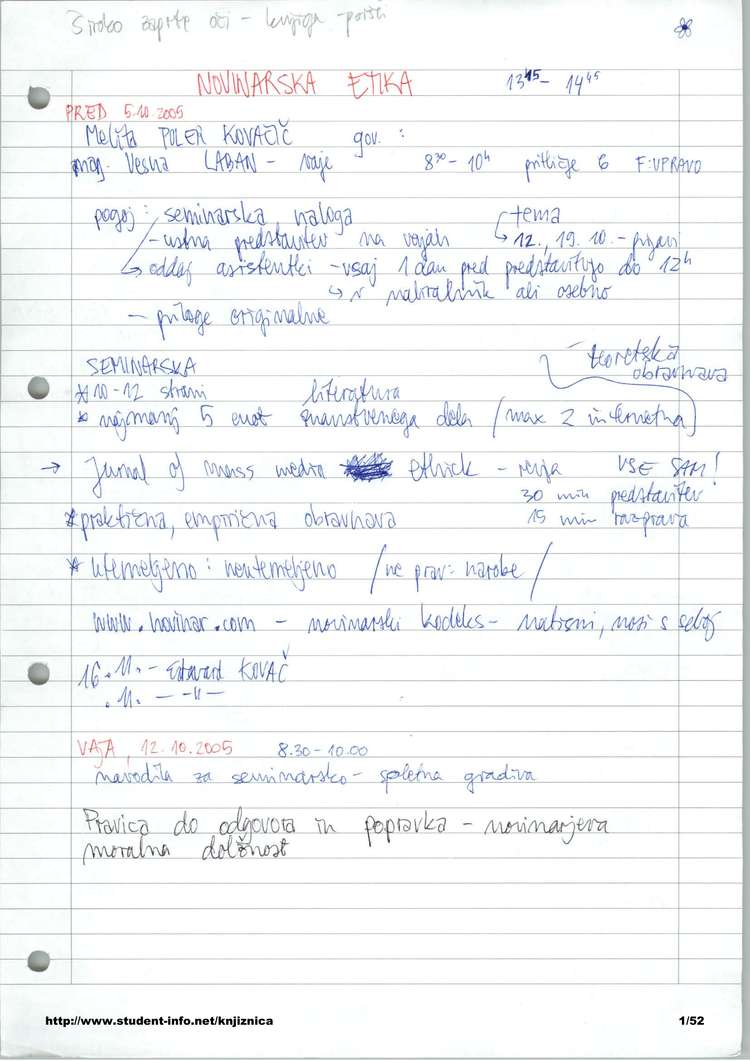 Široko zaprte oči - knjiga - poišči
NOVINARSKA ETIKA 13⁴⁵ - 14⁴⁵
PRED 5.10.2005
Melita POLER KOVAČIČ gov. :
mag. Vesna LABAN - vaje 8³⁰ - 10ʰ pritličje 6 F:UPRAVO
pogoj: seminarska naloga tema
- ustna predstavitev na vajah ↳ 12., 19. 10. - prijavi
↳ oddaj asistentki - vsaj 1 dan pred predstavitvijo do 12ʰ
↳ v nabiralnik ali osebno
- priloge originalne
- teoretska
SEMINARSKA obravnava
* 10-12 strani literatura
* najmanj 5 enot znanstvenega dela (max 2 internetna)
→ Jurnal of mass media ethick - revija VSE SAM!
30 min predstavitev
* praktična, empirična obravnava 15 min razprava
* utemeljeno : neutemeljeno /ne prav : narobe/
www.novinar.com - novinarski kodeks - natisni, nosi s seboj
16. 11. - Edvard KOVAČ
. 11. - -11-
VAJA, 12.10.2005 8.30 - 10.00
navodila za seminarsko - spletna gradiva
Pravica do odgovora in popravka - novinarjeva
moralna dolžnost
http://www.student-info.net/knjiznica 1/52